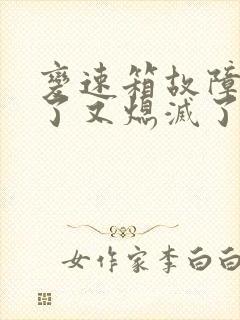 变速箱故障
了又熄滅了
女作家李白白